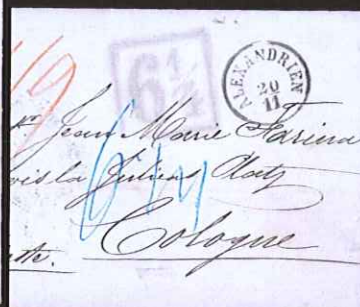 19
6 1/4
ALEXANDRIEN
20
11
Jean Marie Farina
Juliers Platz
6 1/4
Cologne